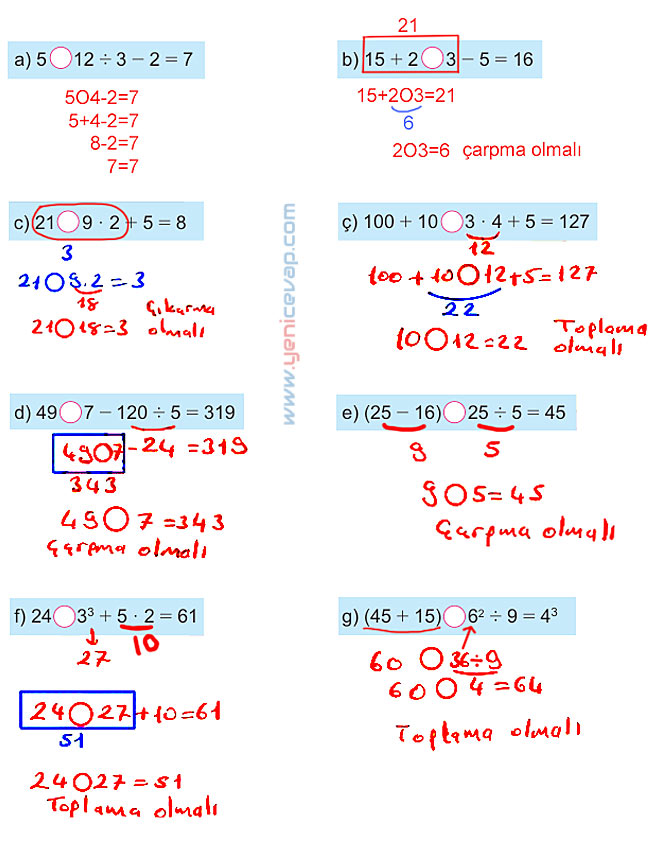 a) 5 ○ 12 ÷ 3 − 2 = 7
5O4-2=7
5+4-2=7
8-2=7
7=7
21
b) 15 + 2 ○ 3 − 5 = 16
15+2O3=21
6
2O3=6 çarpma olmalı
c) 21 ○ 9 · 2 + 5 = 8
3
21 ○ 9.2 = 3
18
21 ○ 18 = 3 Çıkarma
olmalı
ç) 100 + 10 ○ 3 · 4 + 5 = 127
12
100 + 10 ○ 12 + 5 = 127
22
10 ○ 12 = 22 Toplama
olmalı
www.yenicevap.com
d) 49 ○ 7 − 120 ÷ 5 = 319
49 ○ 7 - 24 = 319
343
49 ○ 7 = 343
Çarpma olmalı
e) (25 − 16) ○ 25 ÷ 5 = 45
9 5
9 ○ 5 = 45
Çarpma olmalı
f) 24 ○ 3³ + 5 · 2 = 61
27 10
24 ○ 27 + 10 = 61
51
24 ○ 27 = 51
Toplama olmalı
g) (45 + 15) ○ 6² ÷ 9 = 4³
60 ○ 36 ÷ 9
60 ○ 4 = 64
Toplama olmalı